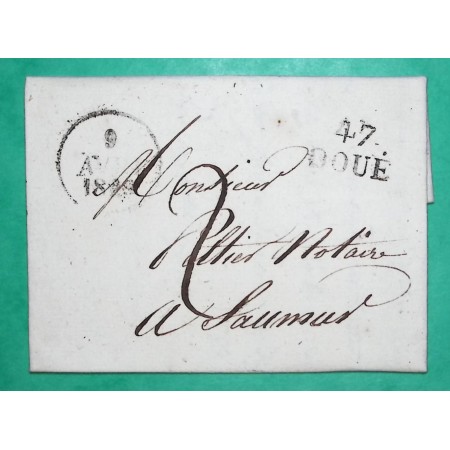 9
AVRIL
47.
DOUÉ
Monsieur
Peltier Notaire
a Saumur
2